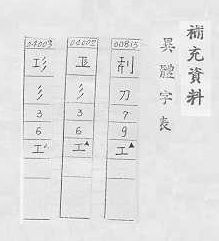 補充資料
異體字表
00815
刹
刀
7
9
工▲
04002
彡
3
6
工▲
04003
彡
3
6
工△